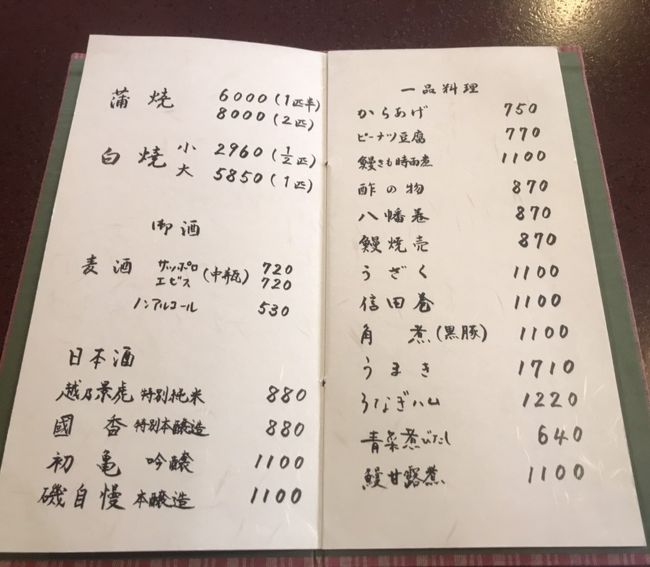 蒲焼 6000(1匹半)
8000(2匹)
白焼 小 2960(1/2匹)
大 5850(1匹)
御酒
麦酒 サッポロ (中瓶) 720
エビス 720
ノンアルコール 530
日本酒
越乃景虎 特別純米 880
國香 特別本醸造 880
初亀 吟醸 1100
磯自慢 本醸造 1100
一品料理
からあげ 750
ピーナツ豆腐 770
鰻きも時雨煮 1100
酢の物 870
八幡巻 870
鰻焼売 870
うざく 1100
信田巻 1100
角煮(黒豚) 1100
うまき 1710
うなぎハム 1220
青菜煮びたし 640
鰻甘露煮 1100